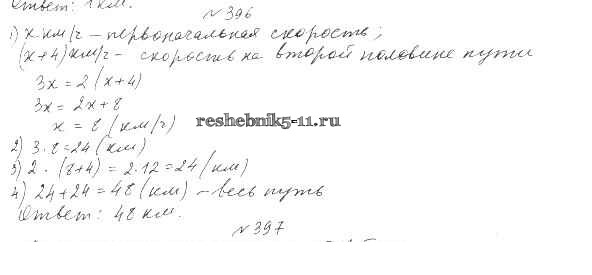 Ответ: 1 км.
№396
1) х км/ч – первоначальная скорость;
(х+4) км/ч – скорость на второй половине пути
3х = 2 (х+4)
3х = 2х + 8
х = 8 (км/ч)
reshebnik5-11.ru
2) 3·8=24 (км)
3) 2·(8+4) = 2·12=24 (км)
4) 24+24=48 (км) – весь путь
Ответ: 48 км.
№397